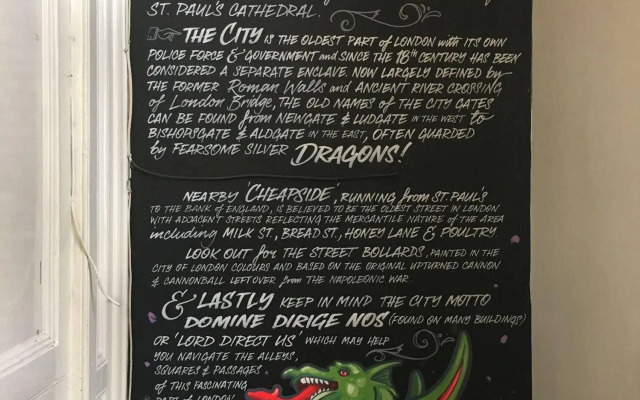 ST. PAUL'S CATHEDRAL.
THE CITY IS THE OLDEST PART of LONDON with ITS OWN
POLICE FORCE & GOVERNMENT and SINCE THE 18th CENTURY HAS BEEN
CONSIDERED A SEPARATE ENCLAVE. NOW LARGELY DEFINED by
THE FORMER Roman Walls and ANCIENT RIVER CROSSING
of London Bridge, THE OLD NAMES OF THE CITY GATES
CAN BE FOUND from NEWGATE & LUDGATE IN THE WEST to
BISHOPSGATE & ALDGATE IN THE EAST, OFTEN GUARDED
by FEARSOME SILVER DRAGONS!
NEARBY 'CHEAPSIDE', RUNNING from ST. PAUL'S
TO THE BANK of ENGLAND, IS BELIEVED TO BE THE OLDEST STREET IN LONDON
WITH ADJACENT STREETS REFLECTING THE MERCANTILE NATURE of THE AREA
including MILK ST., BREAD ST., HONEY LANE & POULTRY.
LOOK OUT for THE STREET BOLLARDS, PAINTED IN THE
CITY OF LONDON COLOURS AND BASED ON THE ORIGINAL UPTURNED CANNON
& CANNONBALL LEFTOVER from THE NAPOLEONIC WAR.
& LASTLY KEEP IN MIND THE CITY MOTTO
DOMINE DIRIGE NOS (FOUND ON MANY BUILDINGS)
OR 'LORD DIRECT US' WHICH MAY HELP
YOU NAVIGATE THE ALLEYS,
SQUARES & PASSAGES
OF THIS FASCINATING
PART OF LONDON